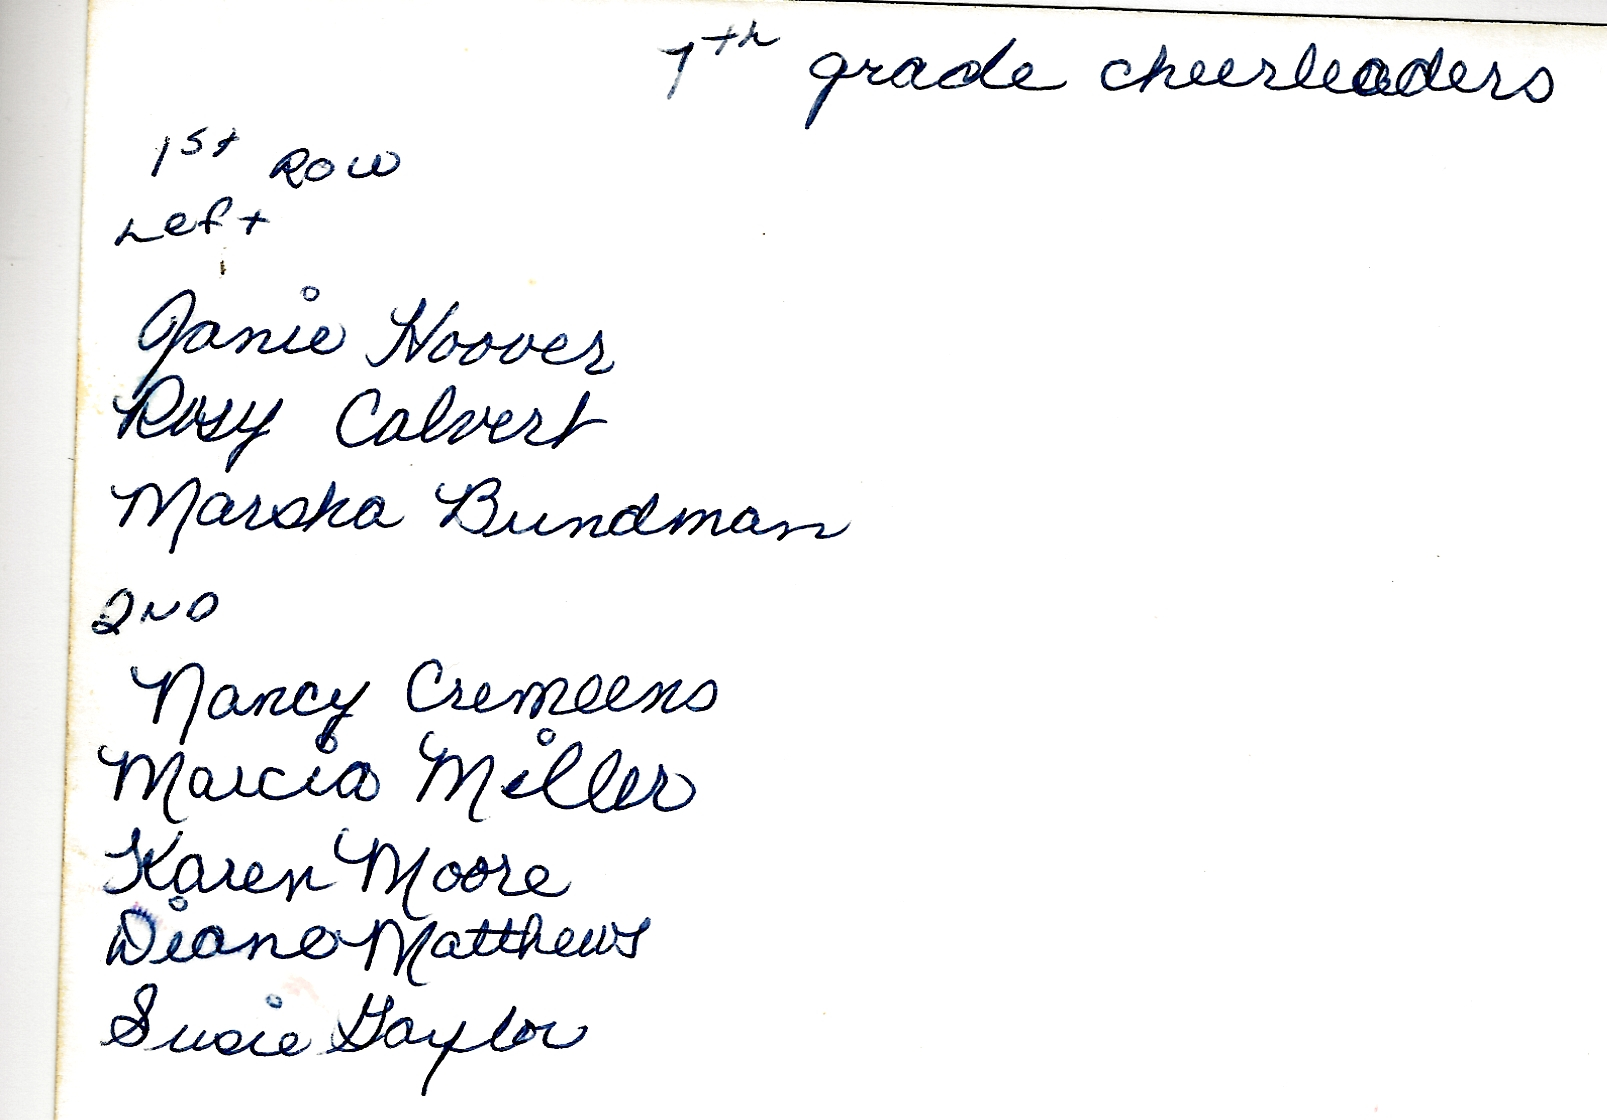 7th grade cheerleaders
1st Row
Left
Janie Hoover
Rosy Calvert
Marsha Bundman
2ND
Nancy Cremeens
Marcia Miller
Karen Moore
Diane Matthews
Susie Gaylor